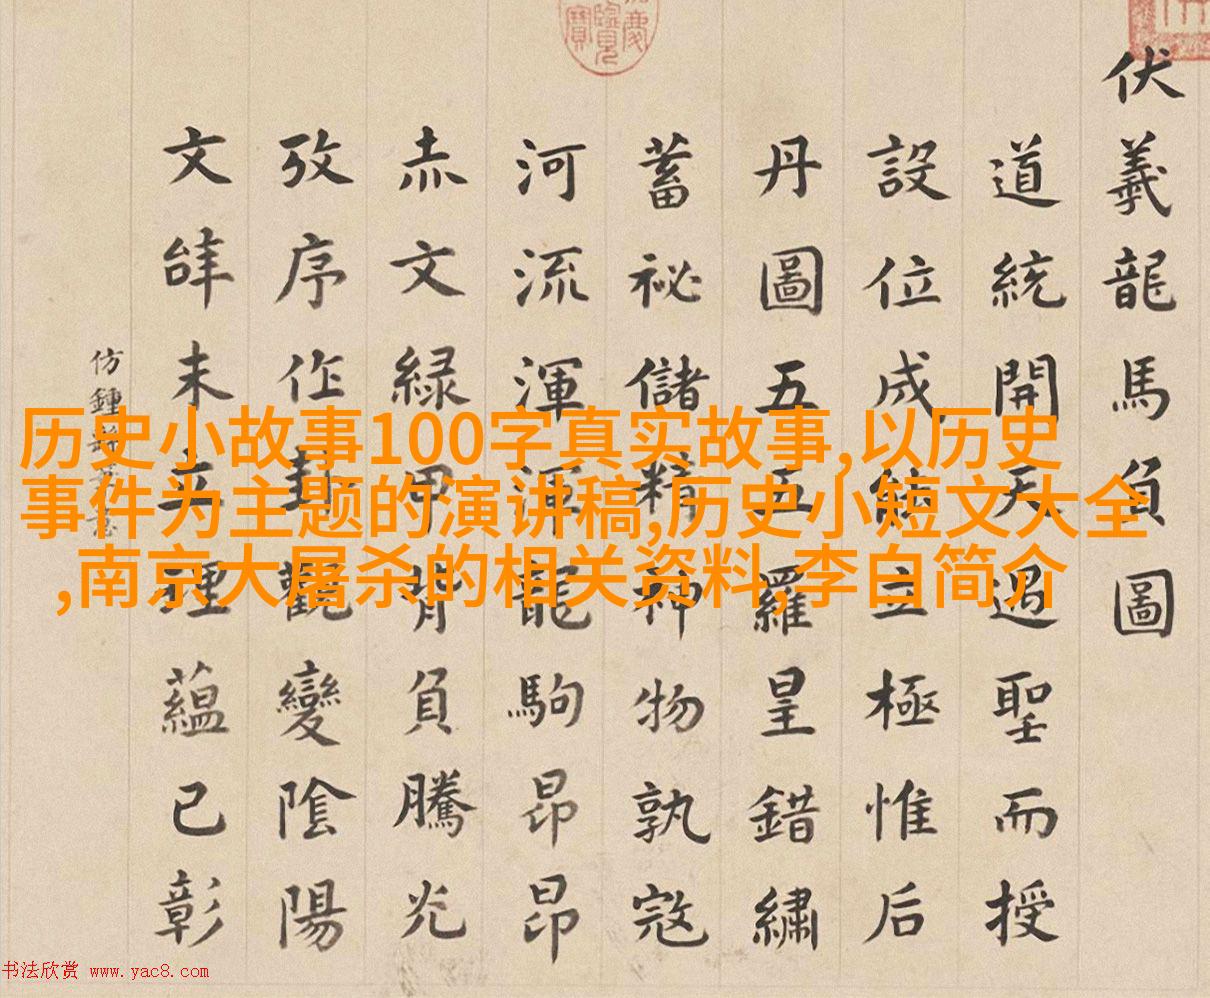 伏羲龍馬負圖
道統開天遇聖而授
設位成能立極惟后
丹圖五五羅皇錯繡
蓄祕儲精神物孰寇
河流渾渾龍駒昂昂
赤文緑甲背負騰光
攷序作卦觀變陰陽
文未立理蘊已彰
仿鍾意
慶覽寶
历史小故事100字真实故事,以历史
事件为主题的演讲稿,历史小短文大全
,南京大屠杀的相关资料,李白简介
书法欣赏 www.yac8.com